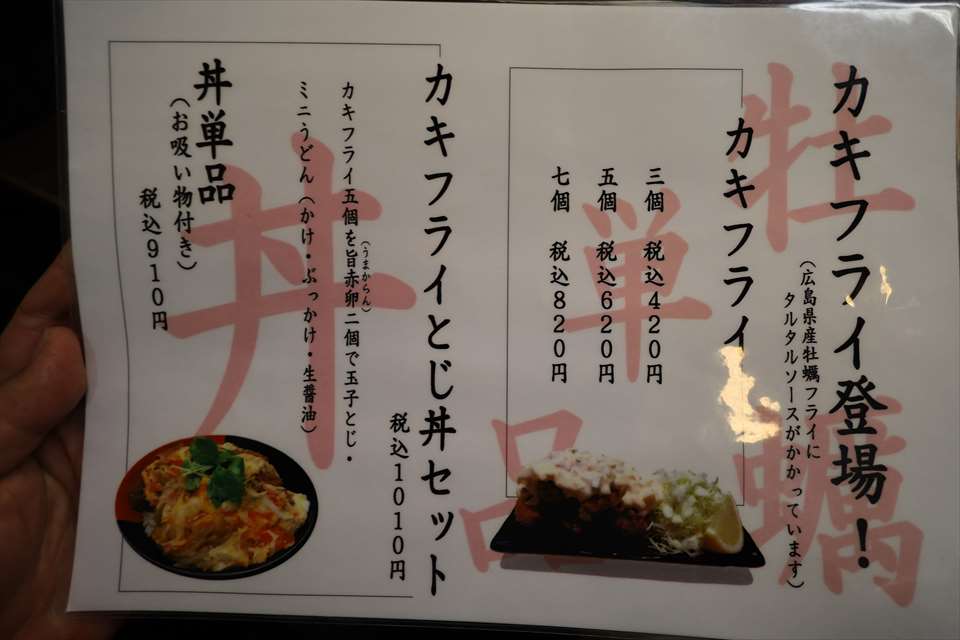 カキフライ登場！
（広島県産牡蠣フライに
タルタルソースがかかっています）
牡蠣
カキフライ
三個 税込420円
五個 税込620円
七個 税込820円
単品
カキフライとじ丼セット
税込1010円
カキフライ五個を旨赤卵二個で玉子とじ・
（うまからん）
ミニうどん（かけ・ぶっかけ・生醤油）
丼
丼単品
（お吸い物付き）
税込910円